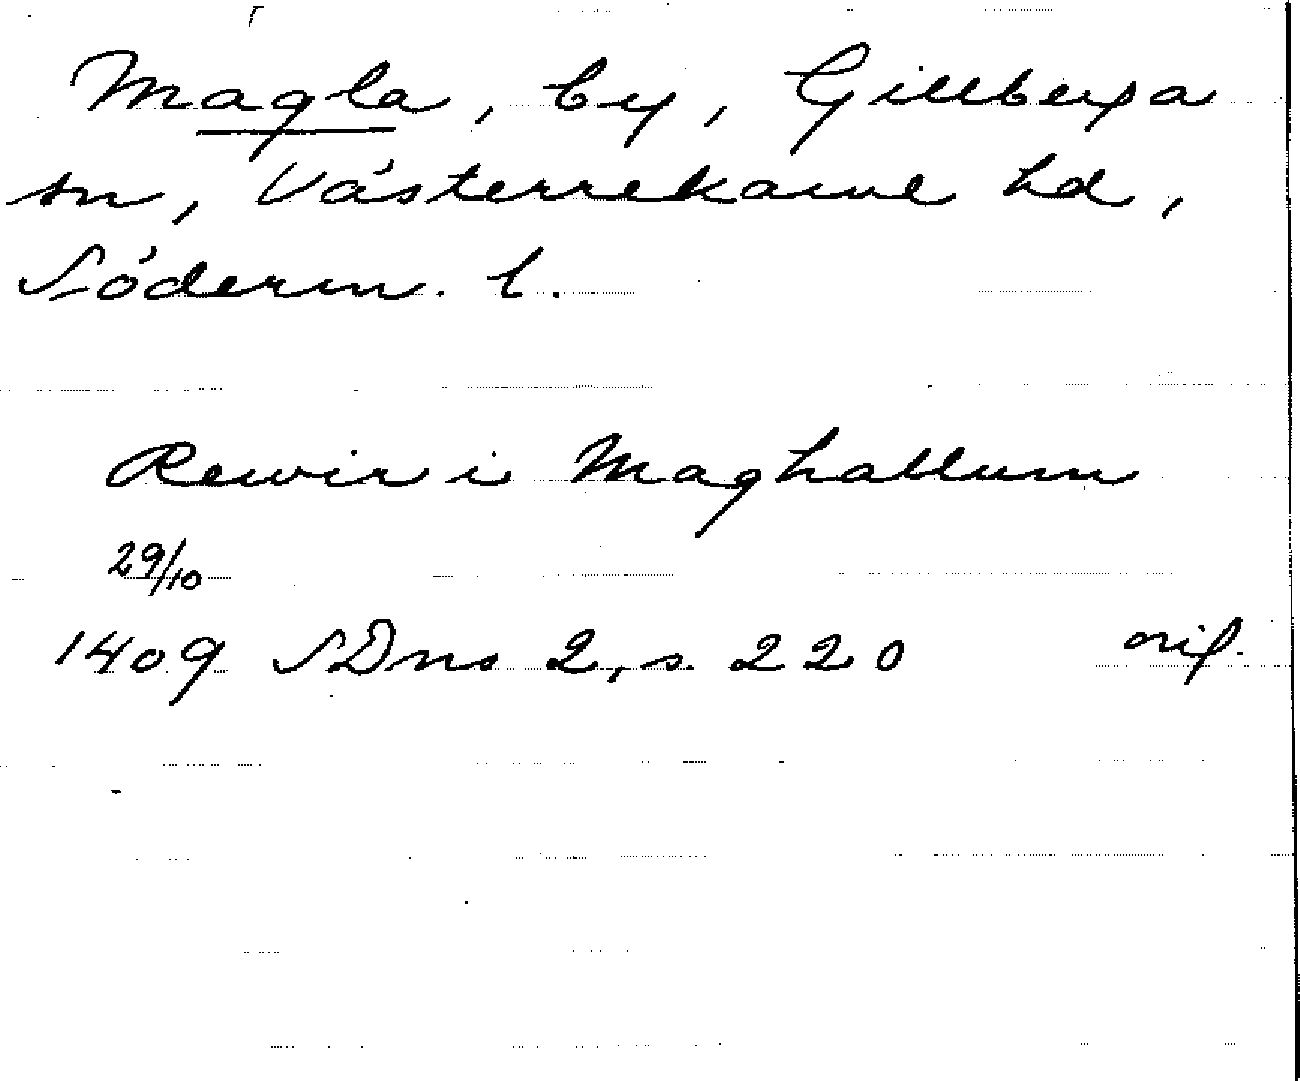 Magla, by, Gillberga
sn, Västerrekarne hd,
Söderm. l.
Rewir i Maghallum
29/10
1409 SDns 2, s. 220 orig.